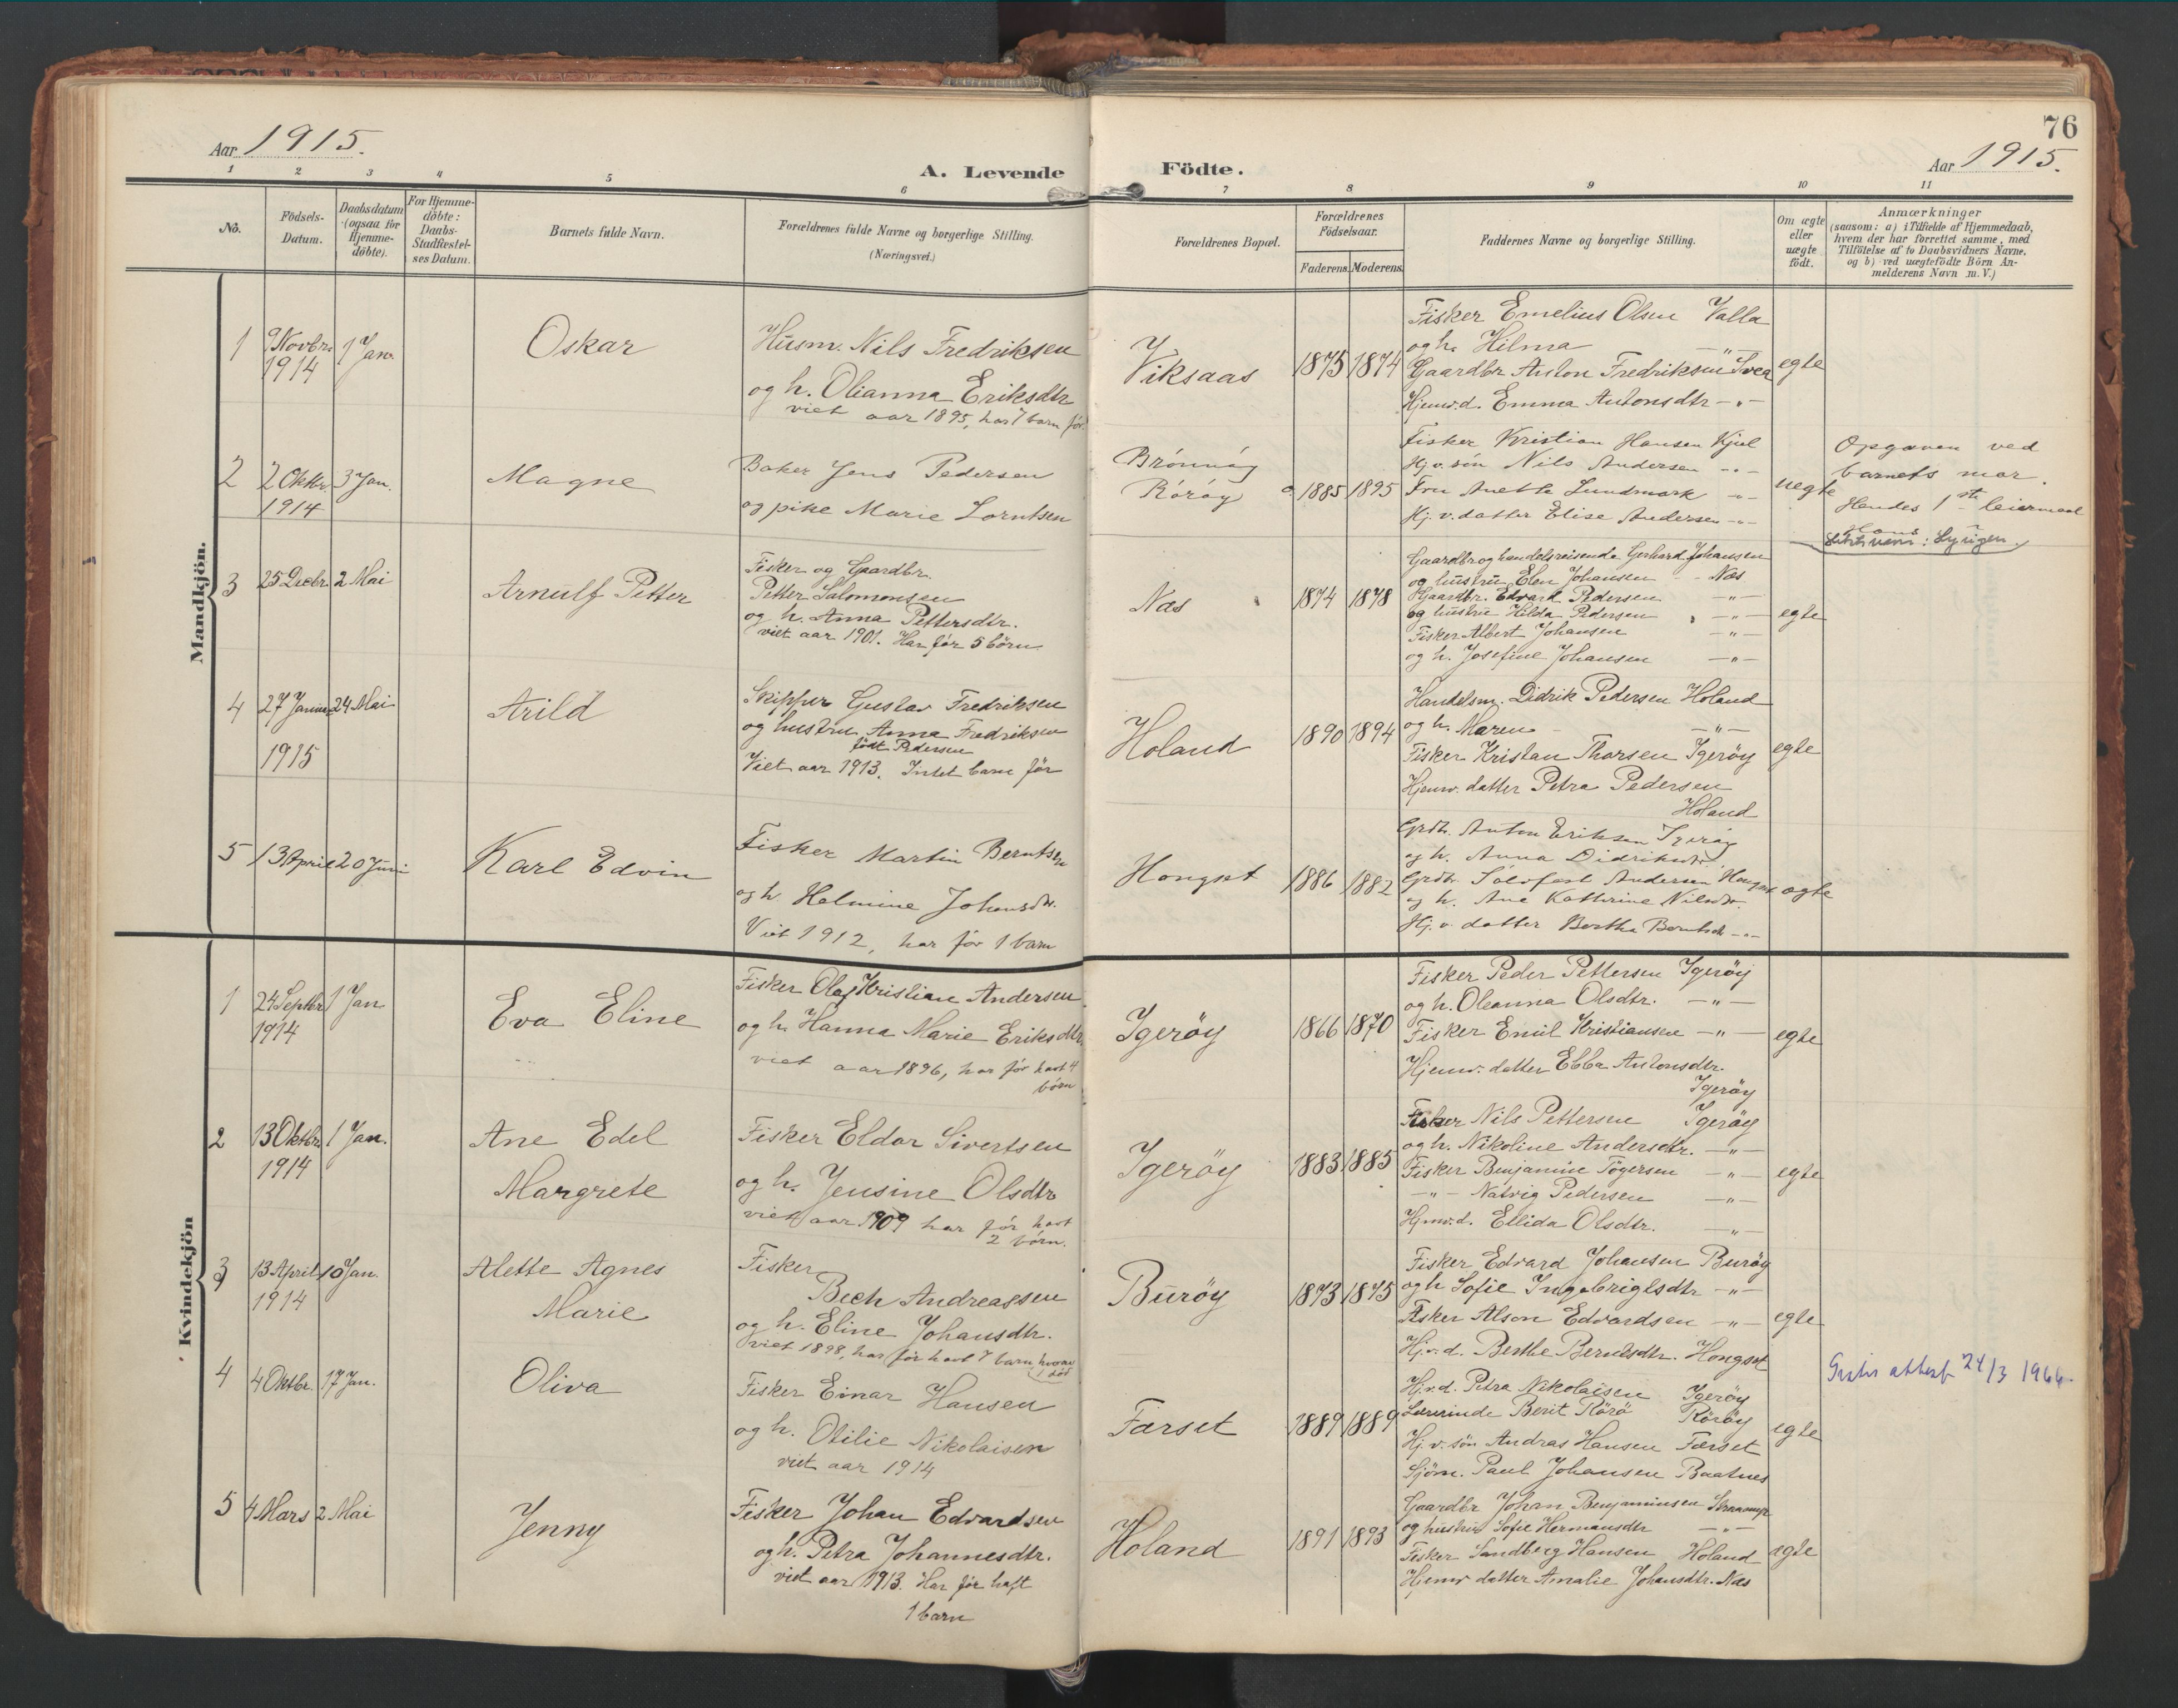 76
Aar 1915.
A. Levende Födte.
Aar 1915.
1 2 3 4 5 6 7 8 9 10 11
No.
Födsels-
Datum.
Daabsdatum
(ogsaa for
Hjemme-
döbte).
For Hjemme-
döbte:
Daabs-
Stadfæstel-
ses Datum.
Barnets fulde Navn.
Forældrenes fulde Navne og borgerlige Stilling.
(Næringsvei.)
Forældrenes Bopæl.
Forældrenes
Födselsaar.
Faderens. Moderens.
Faddernes Navne og borgerlige Stilling.
Om ægte
eller
uægte
födt.
Anmærkninger
(saasom: a) i Tilfælde af Hjemmedaab,
hvem der har forrettet samme, med
Tilföielse af to Daabsvidners Navne,
og b) ved uægtefödte Börn An-
melderens Navn m. V.)
Mandkjön.
1 9 Novbr. 1914 1 Jan. Oskar
Husm. Nils Fredriksen
og h. Olianna Eriksdtr
viet aar 1895, har 7 barn før.
Viksaas 1875 1874
Fisker Emelius Olsen Valla
og h. Hilma —"—
Gaardbr Anton Fredriksen Svea
Hjemv.d. Emma Antonsdtr —"—
egte
2 2 Oktbr. 1914 3 Jan. Magne
Baker Jens Pedersen
og pike Marie Lorntsen
Brónnóy
Rórøy
1885 1895
Fisker Kristian Hansen Kjul
Hj.v. søn Nils Andersen —"—
Fru Anette Lundmark —"—
Hj.v. datter Elise Andersen —"—
uegte
Opgaven ved
barnets mor.
Hendes 1ste leiermaal
3 25 Decbr. 2 Mai Arnulf Petter
Fisker og Gaardbr.
Petter Salomonsen
og h. Anna Pettersdtr.
viet aar 1901. Har før 5 börn
Næs 1874 1878
Gaardbr og handelsreisende Gerhard Johansen
og hustru Elen Johansen - - Næs
Gaardbr. Edvard Pedersen —"—
og hustru Hilda Pedersen —"—
Fisker Albert Johansen —"—
og h. Josefine Johansen —"—
egte
4 27 Januar 1915 24 Mai Arild
Skipper Gustav Fredriksen
og hustru Anna Fredriksen
født Pedersen
Viet aar 1913. Intet barn før
Holand 1890 1894
Handelsm. Didrik Pedersen Holand
og h. Maren —"—
Fisker Kristan Thorsen Igerøy
Hjemv. datter Petra Pedersen
Holand
egte
5 13 April 20 Juni Karl Edvin
Fisker Martin Berntsen
og h Halmine Johansdtr.
Viet 1912, har før 1 barn
Hongset 1886 1882
Grdbr. Anton Eriksen Igerøy
og h. Anna Didriksdtr
Grdbr. Sólvfast Andersen Hongset
og h. Ane Kathrine Nilsdtr.
Hj.v. datter Bertha Berntsdtr —"—
egte
Kvindekjön
1 24 Septbr 1914 1 Jan. Eva Eline
Fisker Olaf Kristian Andersen
og h. Hanna Marie Eriksdtr.
viet aar 1896, har før havt 4
børn
Igerøy 1866 1870
Fisker Peder Pettersen Igerøy
og h. Oleanna Olsdtr. —"—
Fisker Emil Kristiansen —"—
Hjemv. datter Ebba Antonsdtr.
Igerøy
egte
2 13 Oktbr. 1914 1 Jan. Ane Edel
Margrete
Fisker Eldor Sivertsen
og h. Jensine Olsdtr
viet aar 1909 har før havt
2 børn.
Igerøy 1883 1885
Fisker Nils Pettersen Igerøy
og h. Nikoline Andersdtr. —"—
Fisker Benjamin Tögersen —"—
—"— Natvig Pedersen —"—
Hjmv.d. Ellida Olsdtr. —"—
egte
3 13 April 1914 10 Jan. Alette Agnes
Marie
Fisker
Bech Andreassen
og h. Eline Johansdtr.
viet 1898, har før havt 7 barn, hvorav
1 død
Burøy 1873 1875
Fisker Edvard Johansen Burøy
og h Sofie Ingebrigtsdtr —"—
Fisker Alson Edvardsen —"—
Hj.v.d. Berthe Berntsdtr. Hongset
egte
4 4 Oktbr. 17 Jan. Oliva
Fisker Einar Hansen
og h. Otilie Nikolaisen
viet aar 1914
Færset 1889 1889
Hj.v.d. Petra Nikolaisen Igerøy
Lærerinde Berit Rörö Rörøy
Hj.v. søn Andras Hansen Færset
Sjöm. Paul Johansen Baatnes
egte
attest 24/3 1966.
5 4 Mars 2 Mai Jenny
Fisker Johan Edvardsen
og h. Petra Johannesdtr.
viet aar 1913. Har før haft
1 barn
Holand 1891 1893
Gaardbr Johan Benjaminsen
og hustru Sofie Hermansdtr —"—
Fisker Sandberg Hansen Holand
Hjemv datter Amalie Johansdtr. Næs
egte